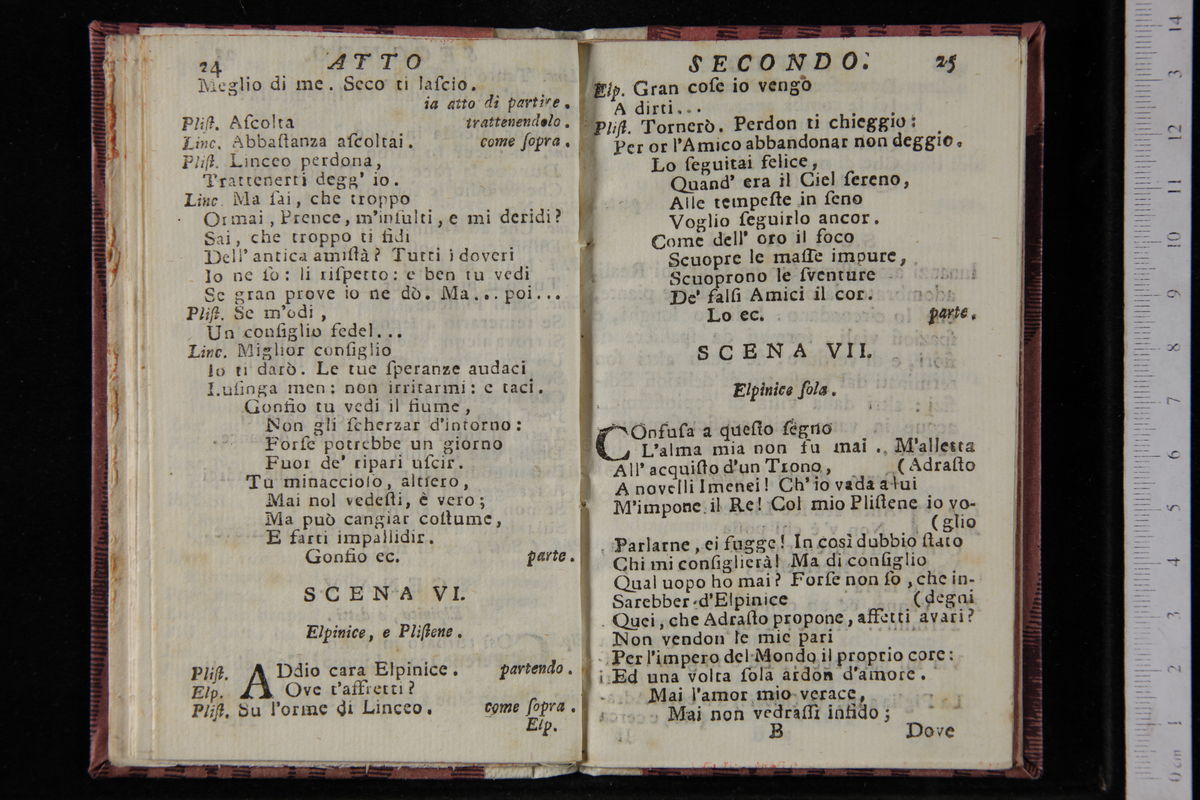 24 ATTO
Meglio di me. Seco ti laſcio.
ia atto di partire.
Pliſt. Aſcolta trattenendolo.
Linc. Abbaſtanza aſcoltai. come ſopra.
Pliſt. Linceo perdona,
Trattenerti degg' io.
Linc. Ma ſai, che troppo
Ormai, Prence, m'inſulti, e mi deridi?
Sai, che troppo ti fidi
Dell' antica amiſtà? Tutti i doveri
Io ne ſo: li riſpetto: e ben tu vedi
Se gran prove io ne dò. Ma... poi...
Pliſt. Se m'odi,
Un conſiglio fedel...
Linc. Miglior conſiglio
Io ti darò. Le tue ſperanze audaci
Luſinga men: non irritarmi: e taci.
Gonfio tu vedi il fiume,
Non gli ſcherzar d'intorno:
Forſe potrebbe un giorno
Fuor de' ripari uſcir.
Tu minaccioſo, altiero,
Mai nol vedeſti, è vero;
Ma può cangiar coſtume,
E farti impallidir.
Gonfio ec. parte.
SCENA VI.
Elpinice, e Pliſtene.
Pliſt. ADdio cara Elpinice. partendo.
Elp. Ove t'affretti?
Pliſt. Su l'orme di Linceo. come ſopra.
Elp.
SECONDO. 25
Elp. Gran coſe io vengo
A dirti...
Pliſt. Tornerò. Perdon ti chieggio:
Per or l'Amico abbandonar non deggio.
Lo ſeguitai felice,
Quand' era il Ciel ſereno,
Alle tempeſte in ſeno
Voglio ſeguirlo ancor.
Come dell' oro il foco
Scuopre le maſſe impure,
Scuoprono le ſventure
De' falſi Amici il cor.
Lo ec. parte.
SCENA VII.
Elpinice ſola.
COnfuſa a queſto ſegno
L'alma mia non fu mai. M'alletta
All' acquiſto d'un Trono, (Adraſto
A novelli Imenei! Ch' io vada a lui
M'impone il Re! Col mio Pliſtene io vo-
(glio
Parlarne, ei fugge! In così dubbio ſtato
Chi mi conſiglierà! Ma di conſiglio
Qual uopo ho mai? Forſe non ſo, che in-
Sarebber d'Elpinice (degni
Quei, che Adraſto propone, affetti avari?
Non vendon le mie pari
Per l'impero del Mondo il proprio core:
Ed una volta ſola ardon d'amore.
Mai l'amor mio verace,
Mai non vedraſſi infido;
B Dove